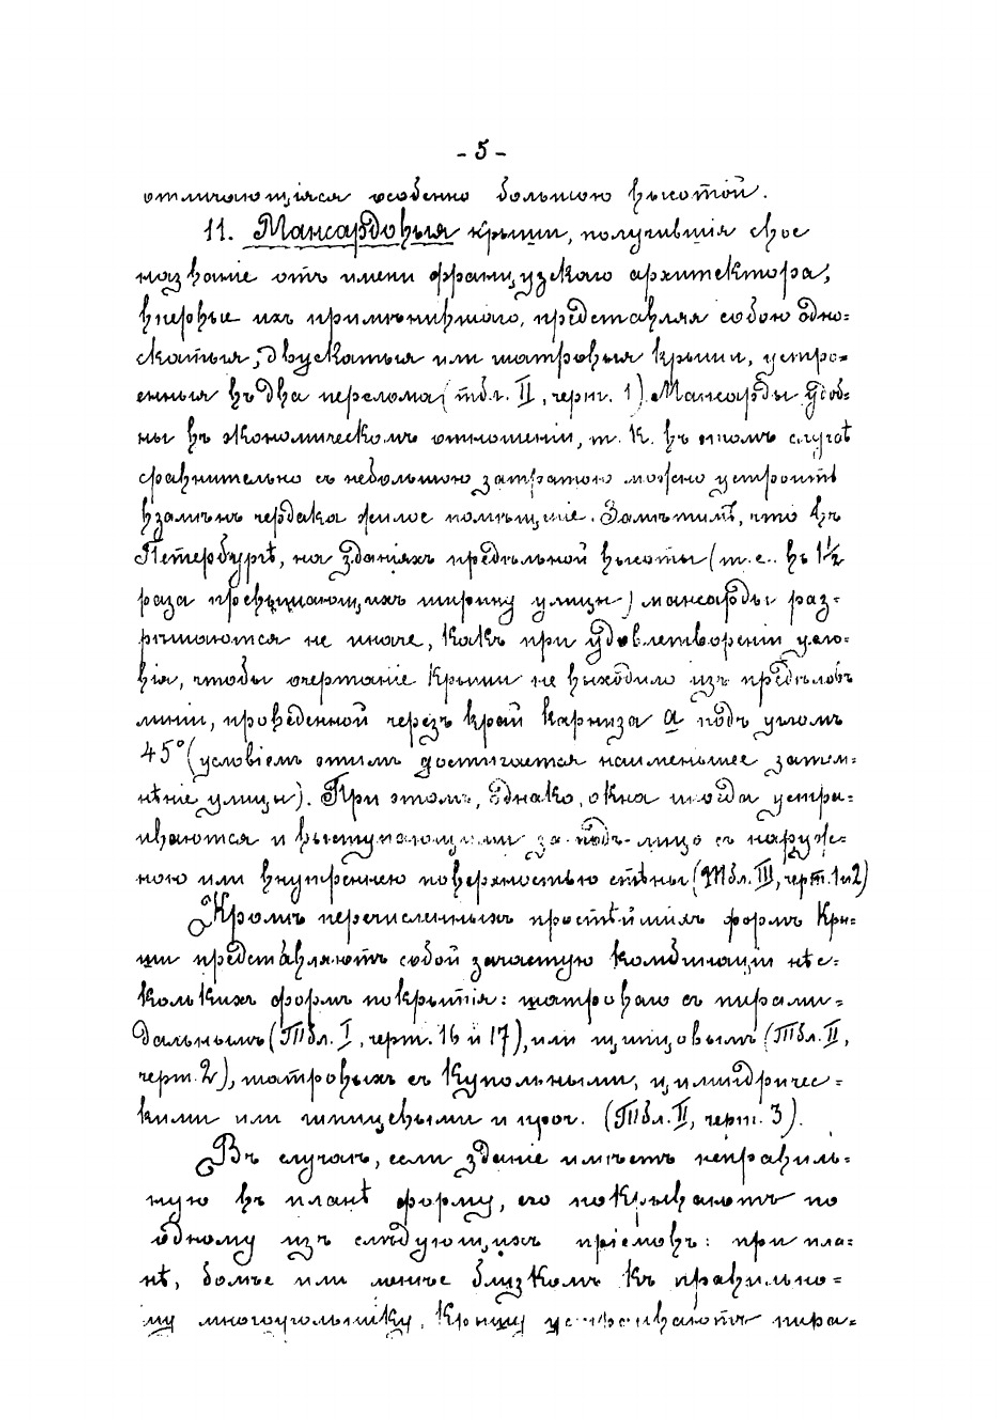 - 5 -
отличающіяся особенно большою высотой.
11. Мансардовыя крыши, получившія свое
названіе отъ имени французскаго архитектора,
впервые ихъ примѣнившаго, представляя собою одно=
скатныя, двускатныя или шатровыя крыши, устро=
енныя въ два перелома (тбл. II, черт. 1). Мансарды удоб=
ны въ экономическомъ отношеніи, т. к. въ этомъ случаѣ
сравнительно съ небольшою затратою можно устроить
взамѣнъ чердака жилое помѣщеніе. Замѣтимъ, что въ
Петербургѣ, на зданіяхъ предѣльной высоты (т.е. въ 1½
раза превышающихъ ширину улицы) мансарды раз=
рѣшаются не иначе, какъ при удовлетвореніи усло=
вія, чтобы очертаніе крыши не выходило изъ предѣловъ
линіи, проведенной черезъ край карниза а подъ угломъ
45° (условіемъ этимъ достигается наименьшее затем=
нѣніе улицы). При этомъ, однако, окна иногда устра=
иваются и выступающими за-подъ-лицо съ наруж=
ною или внутреннею поверхностью стѣны (Тбл. III, черт. 1 и 2)
Кромѣ перечисленныхъ простѣйшихъ формъ кры=
ши представляютъ собой зачастую комбинаціи нѣс=
колькихъ формъ покрытія: шатроваго съ пирами=
дальнымъ (Тбл. I, черт. 16 и 17), или щипцовымъ (Тбл. II,
черт. 2), шатровыхъ съ купольными, цилиндричес=
кими или шпицевыми и проч. (Тбл. II, черт. 3).
Въ случаѣ, если зданіе имѣетъ неправиль=
ную въ планѣ форму, его покрываютъ по
одному изъ слѣдующихъ пріемовъ: при пла=
нѣ, болѣе или менѣе близкомъ къ правильно=
му многоугольнику, крышу устраиваютъ пира=